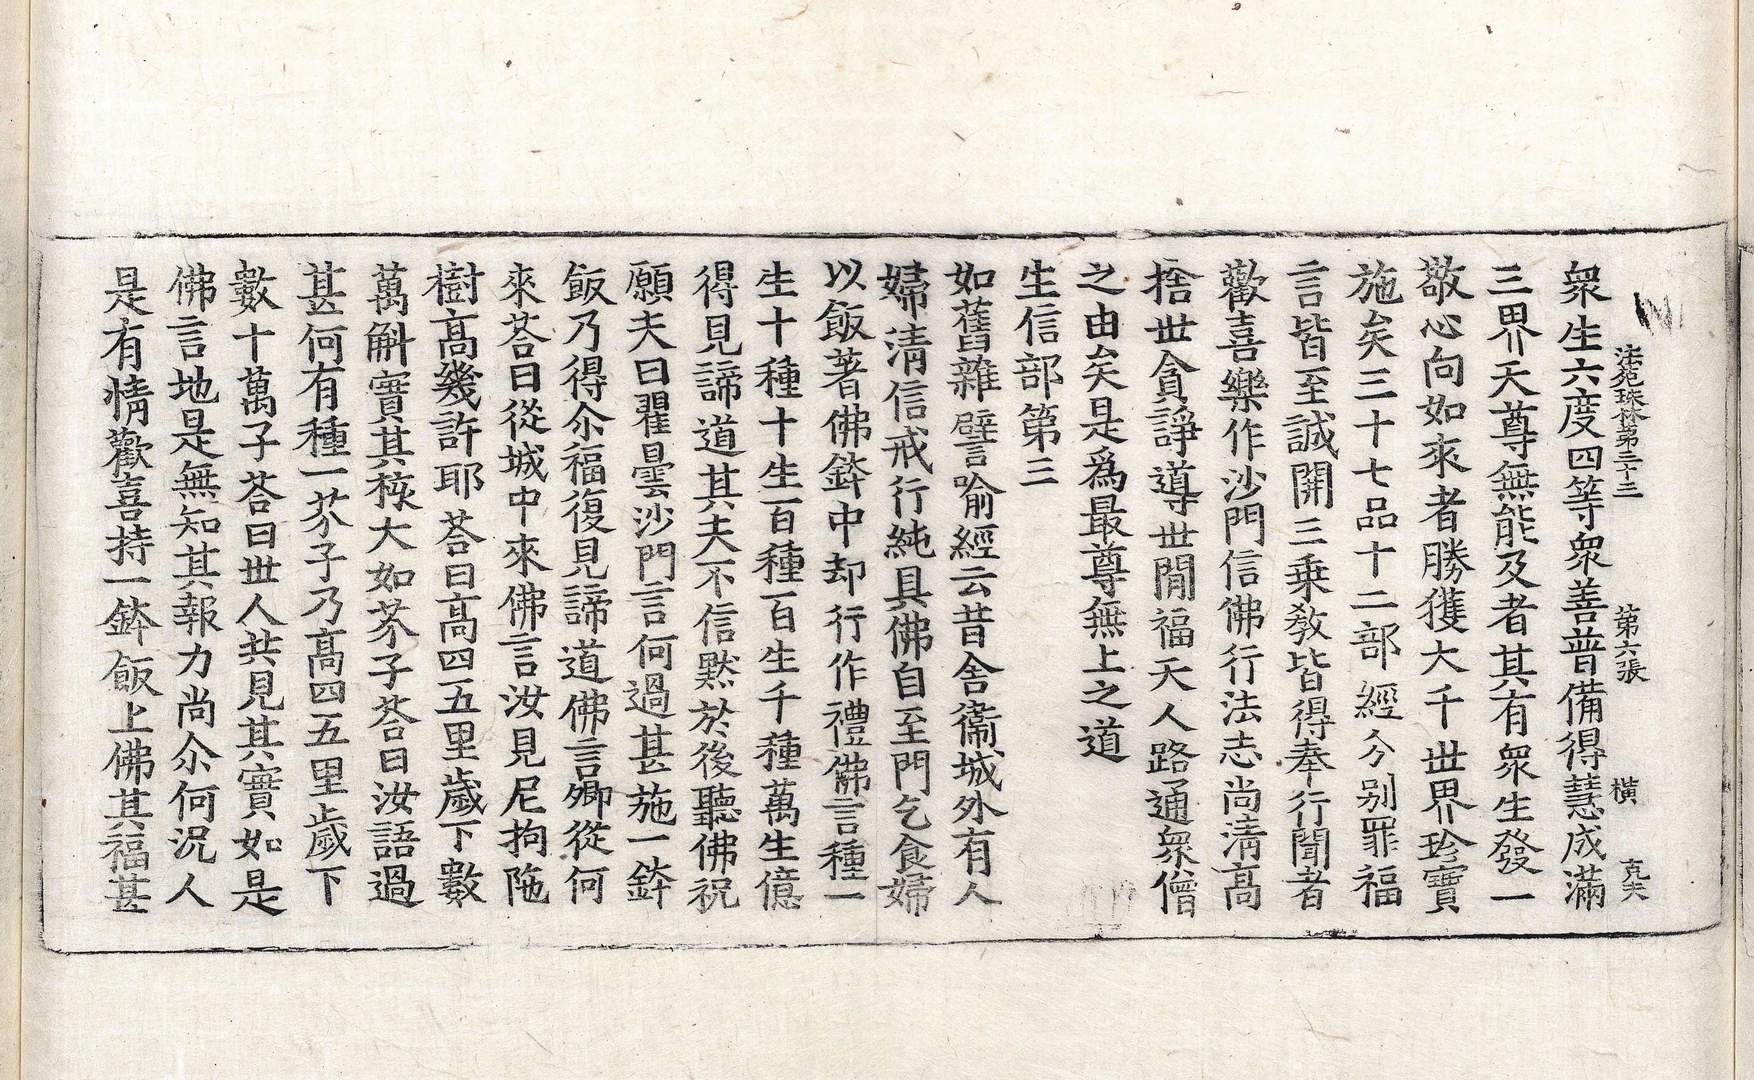 法苑珠林第三十三　第六張　橫　克夫
衆生六度四等衆善普備得慧成滿
三界天尊無能及者其有衆生發一
敬心向如來者勝獲大千世界珍寶
施矣三十七品十二部經分別罪福
言皆至誠開三乗教皆得奉行聞者
歡喜樂作沙門信佛行法志尚清高
捨世貪諍導世間福天人路通衆僧
之由矣是爲最尊無上之道
生信部第三
如舊雜譬喻經云昔舍衞城外有人
婦清信戒行純具佛自至門乞食婦
以飯著佛鉢中却行作禮佛言種一
生十種十生百種百生千種萬生億
得見諦道其夫不信默於後聽佛祝
願夫曰瞿曇沙門言何過甚施一鉢
飯乃得尒福復見諦道佛言卿從何
來荅曰從城中來佛言汝見尼拘陁
樹髙幾許耶荅曰髙四五里歲下數
萬斛實其核大如芥子荅曰汝語過
甚何有種一芥子乃髙四五里歲下
數十萬子荅曰世人共見其實如是
佛言地是無知其報力尚尒何況人
是有情歡喜持一鉢飯上佛其福甚